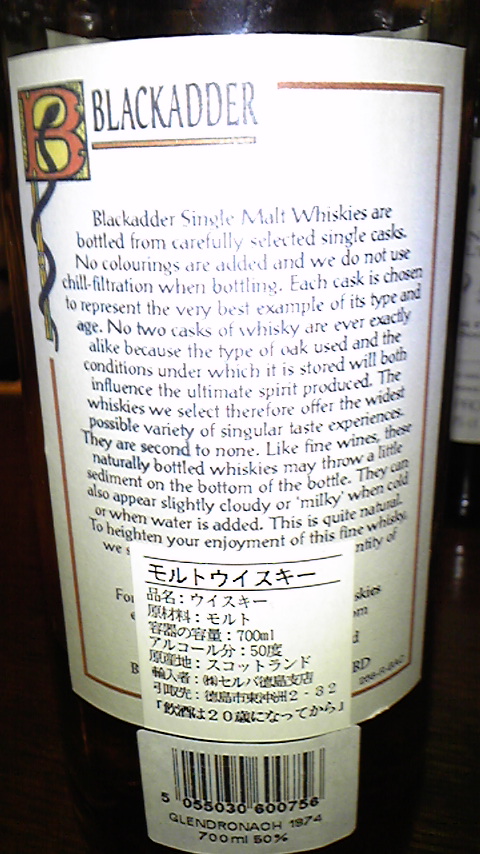 B BLACKADDER
Blackadder Single Malt Whiskies are
bottled from carefully selected single casks.
No colourings are added and we do not use
chill-filtration when bottling. Each cask is chosen
to represent the very best example of its type and
age. No two casks of whisky are ever exactly
alike because the type of oak used and the
conditions under which it is stored will both
influence the ultimate spirit produced. The
whiskies we select therefore offer the widest
possible variety of singular taste experiences.
They are second to none. Like fine wines, these
naturally bottled whiskies may throw a little
sediment on the bottom of the bottle. They can
also appear slightly cloudy or 'milky' when cold
or when water is added. This is quite natural.
To heighten your enjoyment of this fine whisky,
we
モルトウイスキー
品名：ウイスキー
原材料：モルト
容器の容量：700ml
アルコール分：50度
原産地：スコットランド
輸入者：㈱セルバ徳島支店
引取先：徳島市東沖洲2-32
「飲酒は20歳になってから」
5 055030 600756
GLENDRONACH 1974
700ml 50%